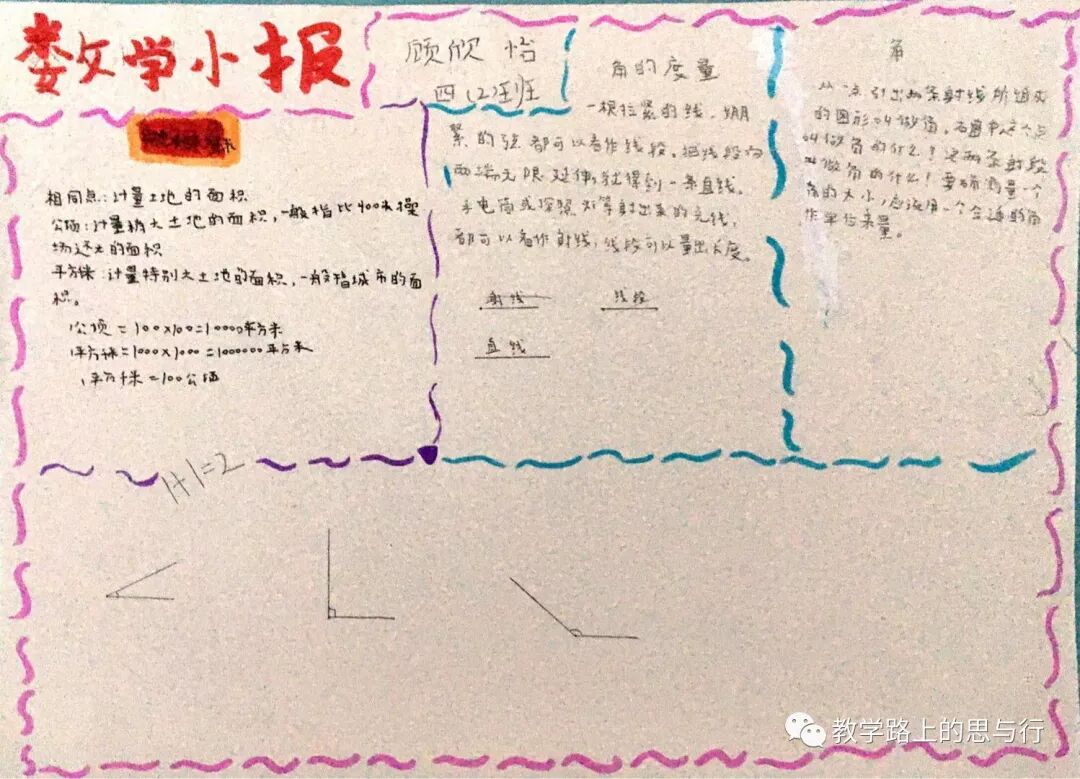 数学小报
顾欣怡
四(2)班
相同点:计量土地的面积
公顷:计量稍大土地的面积,一般指比400米操
场还大的面积
平方千米:计量特别大土地的面积,一般指城市的面
积。
公顷=100×100=10000平方米
1平方千米=1000×1000=1000000平方米
1平方千米=100公顷
角的度量
一根拉紧的线、绷
紧的弦都可以看作线段,把线段向
两端无限延伸,就得到一条直线。
手电筒或探照灯等射出来的光线,
都可以看作射线,线段可以量出长度。
射线
线段
直线
角
从一点引出两条射线所组成
的图形叫做角。右图中这个点
叫做角的什么?这两条射段
叫做角的什么!要确测量一个
角的大小,应该用一个合适的角
作单位来量。
1+1=2
教学路上的思与行